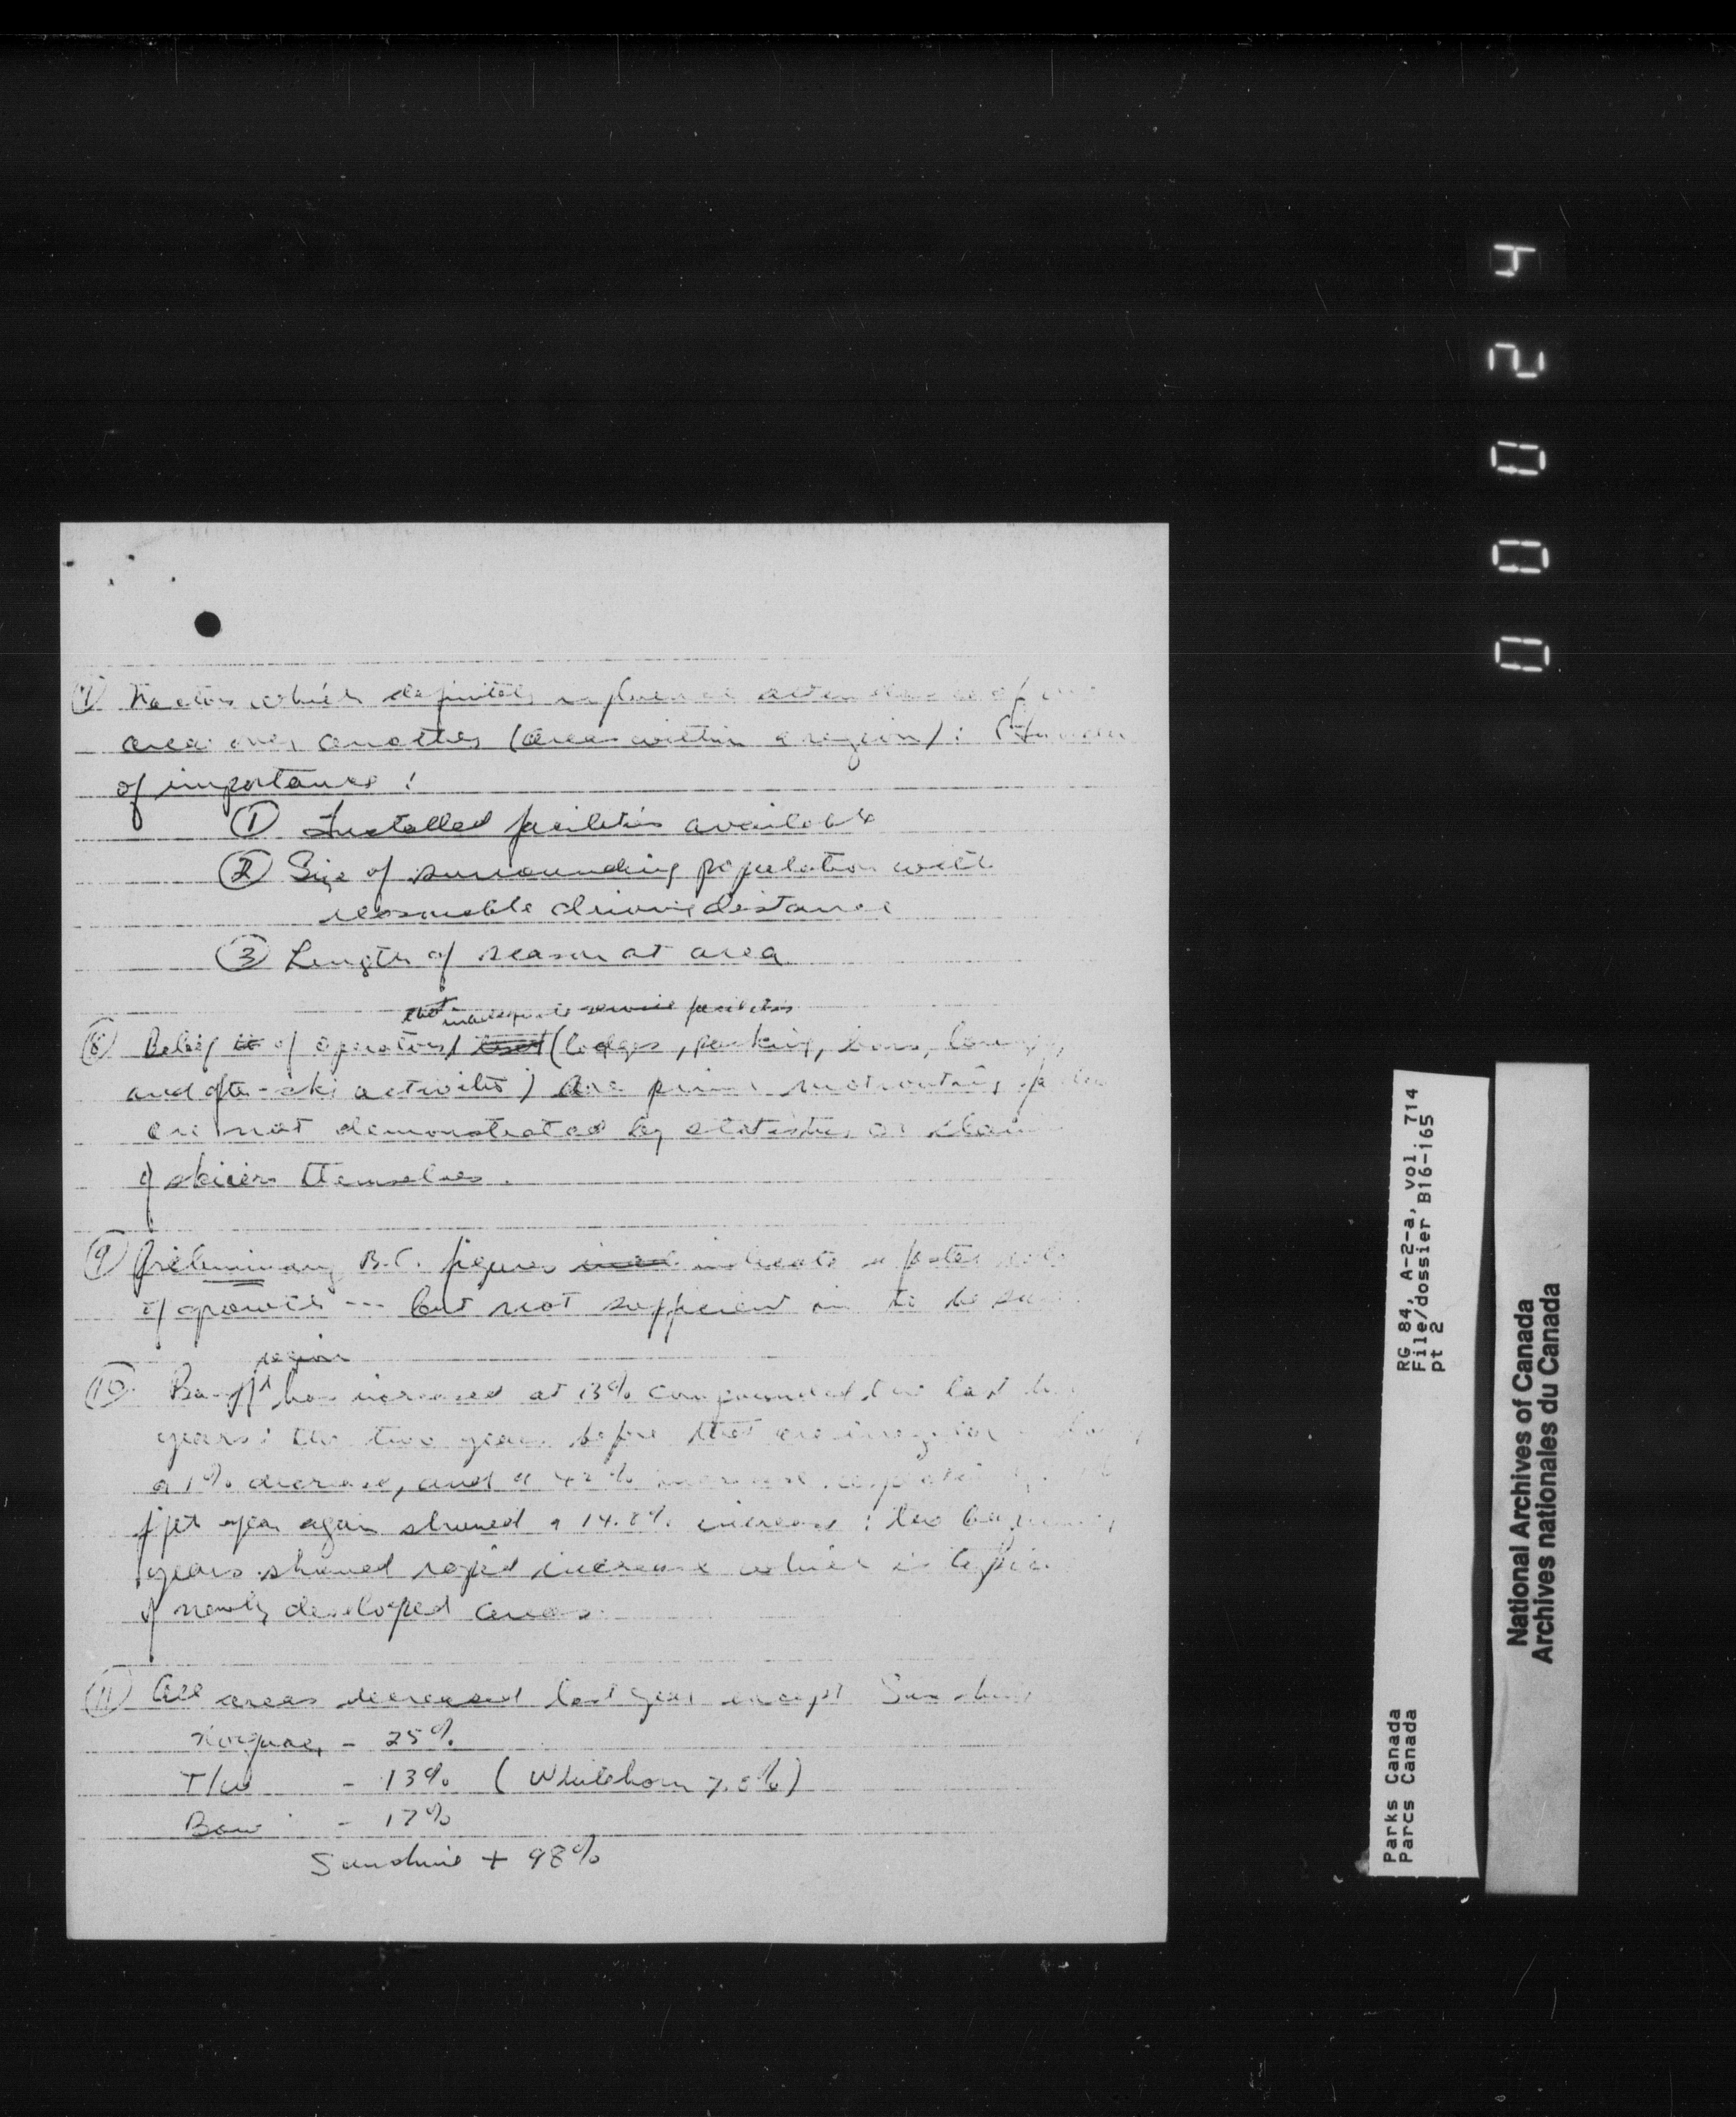 ⑦ Factors which definitely influence attendance of
area over another (areas within a region):
of importance:
① Installed facilities available
② Size of surrounding population with
reasonable driving distance
③ Length of season at area
that inadequate service facilities
⑧ Belief of operators (lodges, parking, bars,
and after-ski activities) are prime motivating
are not demonstrated by statistics or
of skiers themselves.
⑨ Preliminary B.C. figures indicate a faster
of growth --- but not sufficient to be
region
⑩ Banff has increased at 13% compounded the last
years: the two years before that are
a 1% decrease, and a 42%
year again showed a 14.8% increase: two
years showed rapid increase which is
of newly developed areas.
⑪ All areas decreased last year except Sunshine
Norquay - 25%
T/W - 13% (Whitehorn 7.8%)
Bow - 17%
Sunshine + 98%
00024
RG 84, A-2-a, vol. 714
File/dossier B16-165
pt 2
Parks Canada
Parcs Canada
National Archives of Canada
Archives nationales du Canada